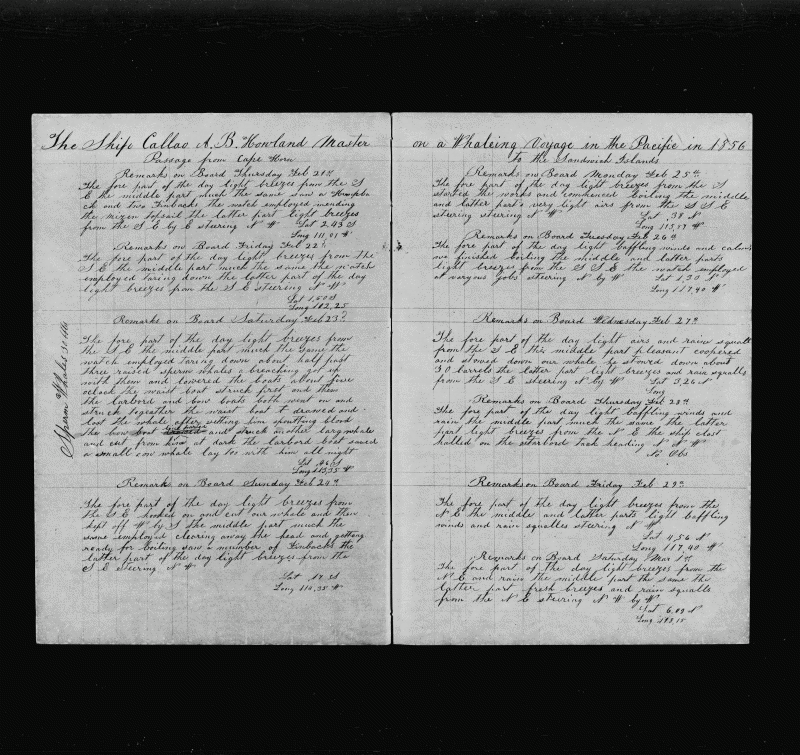 The Ship Callao A. B. Howland Master
Passage from Cape Horn
Remarks on Board Thursday Feb 21st
The fore part of the day light breezes from the S
E the middle part much the same saw a Humpba
ck and two Finbacks the watch employed mending
the mizen topsail the latter part light breezes
from the S E by E steering N W Lat 2,43 S
Long 111,01 W
Remarks on Board Friday Feb 22
The fore part of the day light breezes from the
S E the middle part much the same the watch
employed taring down the latter part of the day
light breezes from the S E steering N W
Lat 1,50 S
Long 112,25
Remarks on Board Saturday Feb 23d
The fore part of the day light breezes from
the S E the middle part much the same the
watch employed taring down about half past
three raised sperm whales a breaching got up
with them and lowered the boats about five
oclock the waist boat struck first and then
the larbord and bow boats both went on and
struck togeather the waist boat drawed and
lost the whale after setting him spouting blood
the bow boat and struck another large whale
and cut from him at dark the larbord boat saved
a small one whale lay too with him all night
Lat ,46 S
Long 113,35 W
Sperm Whales
Remarks on Board Sunday Feb 24th
The fore part of the day light breezes from
the S E hooked on and cut our whale and then
kept off W by S the middle part much the
same employed clearing away the head and getting
ready for boiling saw a number of Finbacks the
latter part of the day light breezes from the
S E steering N W
Lat 17 S
Long 114,35 W
on a Whaleing Voyage in the Pacific in 1856
To the Sandwich Islands
Remarks on Board Monday Feb 25th
The fore part of the day light breezes from the S
started the works and commenced boiling the middle
and latter part's very light airs from the S S E
steering steering N W Lat ,38 N
Long 115,57 W
Remarks on Board Tuesday Feb 26th
The fore part of the day light baffling winds and calms
we finished boiling the middle and latter parts
light breezes from the S S E the watch employed
at varyous jobs steering N by W Lat 1,30 N
Long 117,40 W
Remarks on Board Wednesday Feb 27th
The fore part of the day light airs and rain squalls
from the S E the middle part pleasant coopered
and stowed down our whale he stowed down about
30 barrels the latter part light breezes and rain squalls
from the S E steering N by W Lat 3,26 N
Long
Remarks on Board Thursday Feb 28th
The fore part of the day light baffling winds and
rain the middle part much the same the latter
part light breezes from the N E the ship clost
halled on the starbord tack heading N N W
No Obs
Remarks on Board Friday Feb 29th
The fore part of the day light breezes from the
N E the middle and latter parts light baffling
winds and rain squalles steering N W
Lat 4,56 N
Long 117,40 W
Remarks on Board Saturday Mar 1st
The fore part of the day light breezes from the
N E and rain the middle part the same the
latter part fresh breezes and rain squalls
from the N E steering N W by W
Lat 6,09 N
Long 118,15